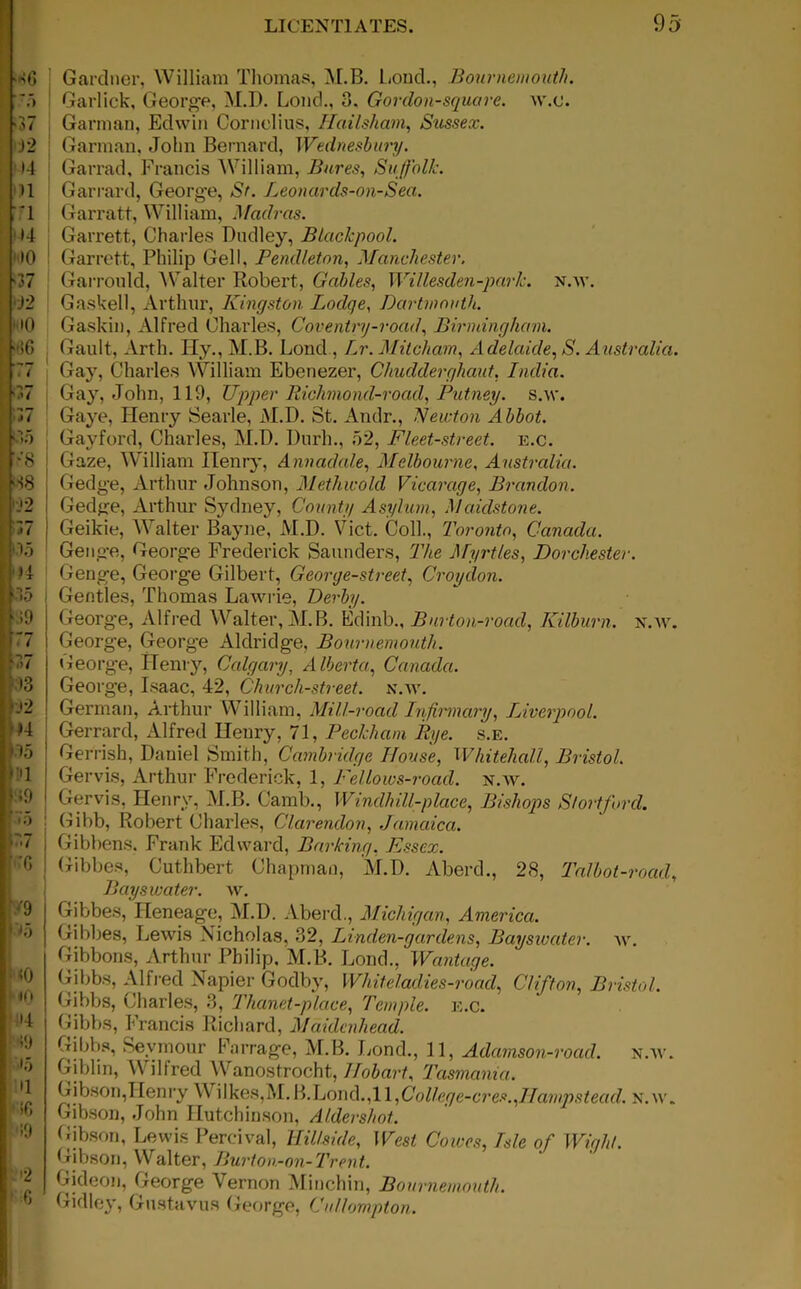 LICENTIATES. 95
Gardner, William Thomas, M.B. Lond., Bournemouth.
Garlick, George, M.D. Lond., 3, Gordon-square. W.C.
37 Garman, Edwin Cornelius, Hailsham, Sussex.
Garman, John Bernard, Wednesbury.
Garrad, Francis William, Bures, Suffolk.
Garrard, George, St. Leonards-on-Sea.
Garratt, William, Madras.
Garrett, Charles Dudley, Blackpool.
Garrett, Philip Gell, Pendleton, Manchester.
37 Garrould, Walter Robert, Gables, Willesden-park. N.W.
Gaskell, Arthur, Kingston Lodge, Dartmouth.
Gaskin, Alfred Charles, Coventry-road, Birmingham.
Gault, Arth. Hy., M.B. Lond., Lr. Mitcham, Adelaide, S. Australia.
Gay, Charles William Ebenezer, Chudderghaut, India.
37 Gay, John, 119, Upper Richmond-road, Putney. S.W.
37 Gaye, Henry Searle, M.D. St. Andr., Newton Abbot.
Gayford, Charles, M.D. Durh., 52, Fleet-street. E.C.
Gaze, William Henry, Annadale, Melbourne, Australia.
88 Gedge, Arthur Johnson, Methwold Vicarage, Brandon.
Gedge, Arthur Sydney, County Asylum, Maidstone.
37 Geikie, Walter Bayne, M.D. Vict. Coll., Toronto, Canada.
Genge, George Frederick Saunders, The Myrtles, Dorchester.
Genge, George Gilbert, George-street, Croydon.
Gentles, Thomas Lawrie, Derby.
George, Alfred Walter, M.B. Edinb., Burton-road, Kilburn. N.W.
George, George Aldridge, Bournemouth.
George, Henry, Calgary, Alberta, Canada.
George, Isaac, 42, Church-street. N.W.
German, Arthur William, Mill-road Infirmary, Liverpool.
Gerrard, Alfred Henry, 71, Peckham Rye. S.E.
Gerrish, Daniel Smith, Cambridge House, Whitehall, Bristol.
Gervis, Arthur Frederick, 1, Fellows-road. N.W.
Gervis, Henry, M.B. Camb., Windhill-place, Bishops Stortford.
Gibb, Robert Charles, Clarendon, Jamaica.
Gibbens, Frank Edward, Barking, Essex.
Gibbes, Cuthbert Chapman, M.D. Aberd., 28, Talbot-road,
Bayswater. W.
Gibbes, Heneage, M.D. Aberd., Michigan, America.
Gibbes, Lewis Nicholas, 32, Linden-gardens, Bayswater. W.
Gibbons, Arthur Philip, M.B. Lond., Wantage.
Gibbs, Alfred Napier Godby, Whiteladies-road, Clifton, Bristol.
Gibbs, Charles, 3, Thanet-place, Temple. E.C.
Gibbs, Francis Richard, Maidenhead.
Gibbs, Seymour Farrage, M.B. Lond., 11, Adamson-road. N.W.
Giblin, Wilfred Wanostrocht, Hobart, Tasmania.
Gibson, Henry Wilkes, M.B. Lond., 11, College-cres., Hampstead. N.W.
Gibson, John Hutchinson, Aldershot.
Gibson, Lewis Percival, Hillside, West Cowes, Isle of Wight.
Gibson, Walter, Burton-on-Trent.
Gideon, George Vernon Minchin, Bournemouth.
Gidley, Gustavus George, Cullompton.